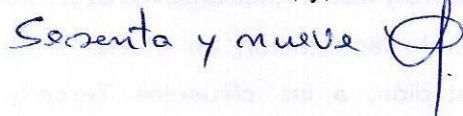 Sesenta y nueve